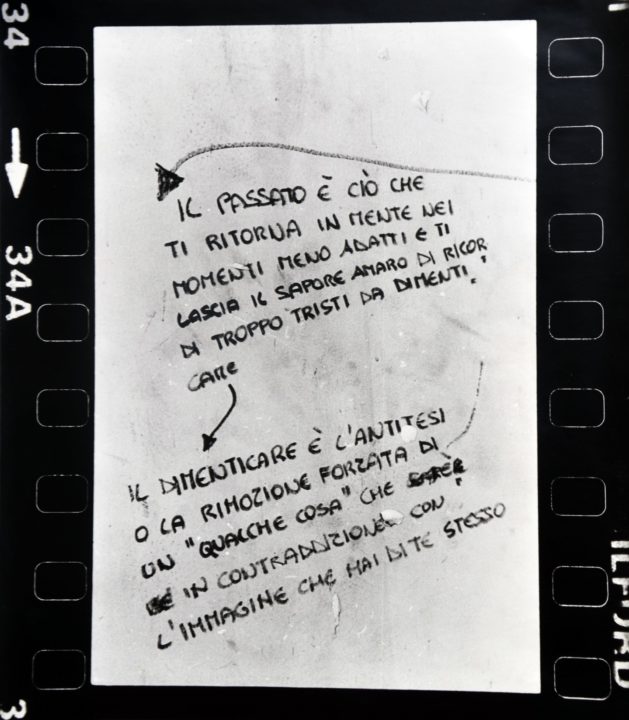 34
34A
3
ILFORD
IL PASSATO È CIÒ CHE
TI RITORNA IN MENTE NEI
MOMENTI MENO ADATTI E TI
LASCIA IL SAPORE AMARO DI RICOR
DI TROPPO TRISTI DA DIMENTI."
CARE
IL DIMENTICARE È L'ANTITESI
O LA RIMOZIONE FORZATA DI
UN "QUALCHE COSA" CHE
È IN CONTRADDIZIONE CON
L'IMMAGINE CHE HAI DI TE STESSO